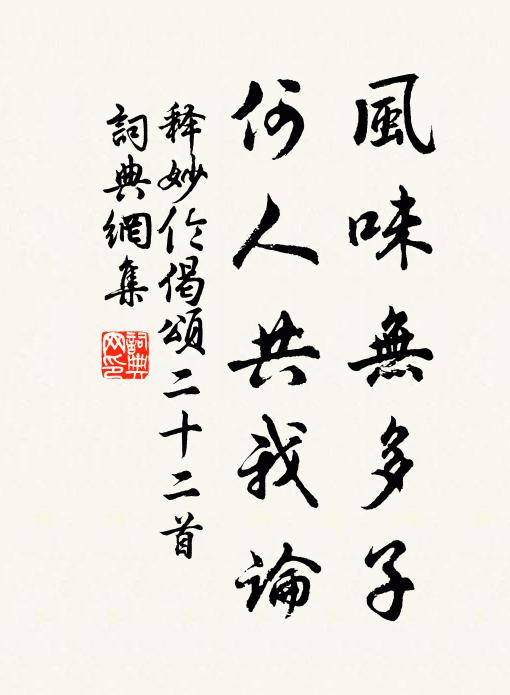 風味無多子
何人共我論
释妙伦偈頌二十二首
詞典網集
詞典
网印